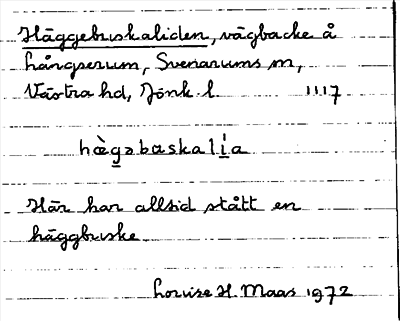 Häggebuskaliden, vägbacke å
Hångserum, Svenarums sn,
Västra hd, Jönk. l. 1117
hæ̀gəbuskali̇́a
Här har alltid stått en
häggbuske.
Louise H. Maas 1972